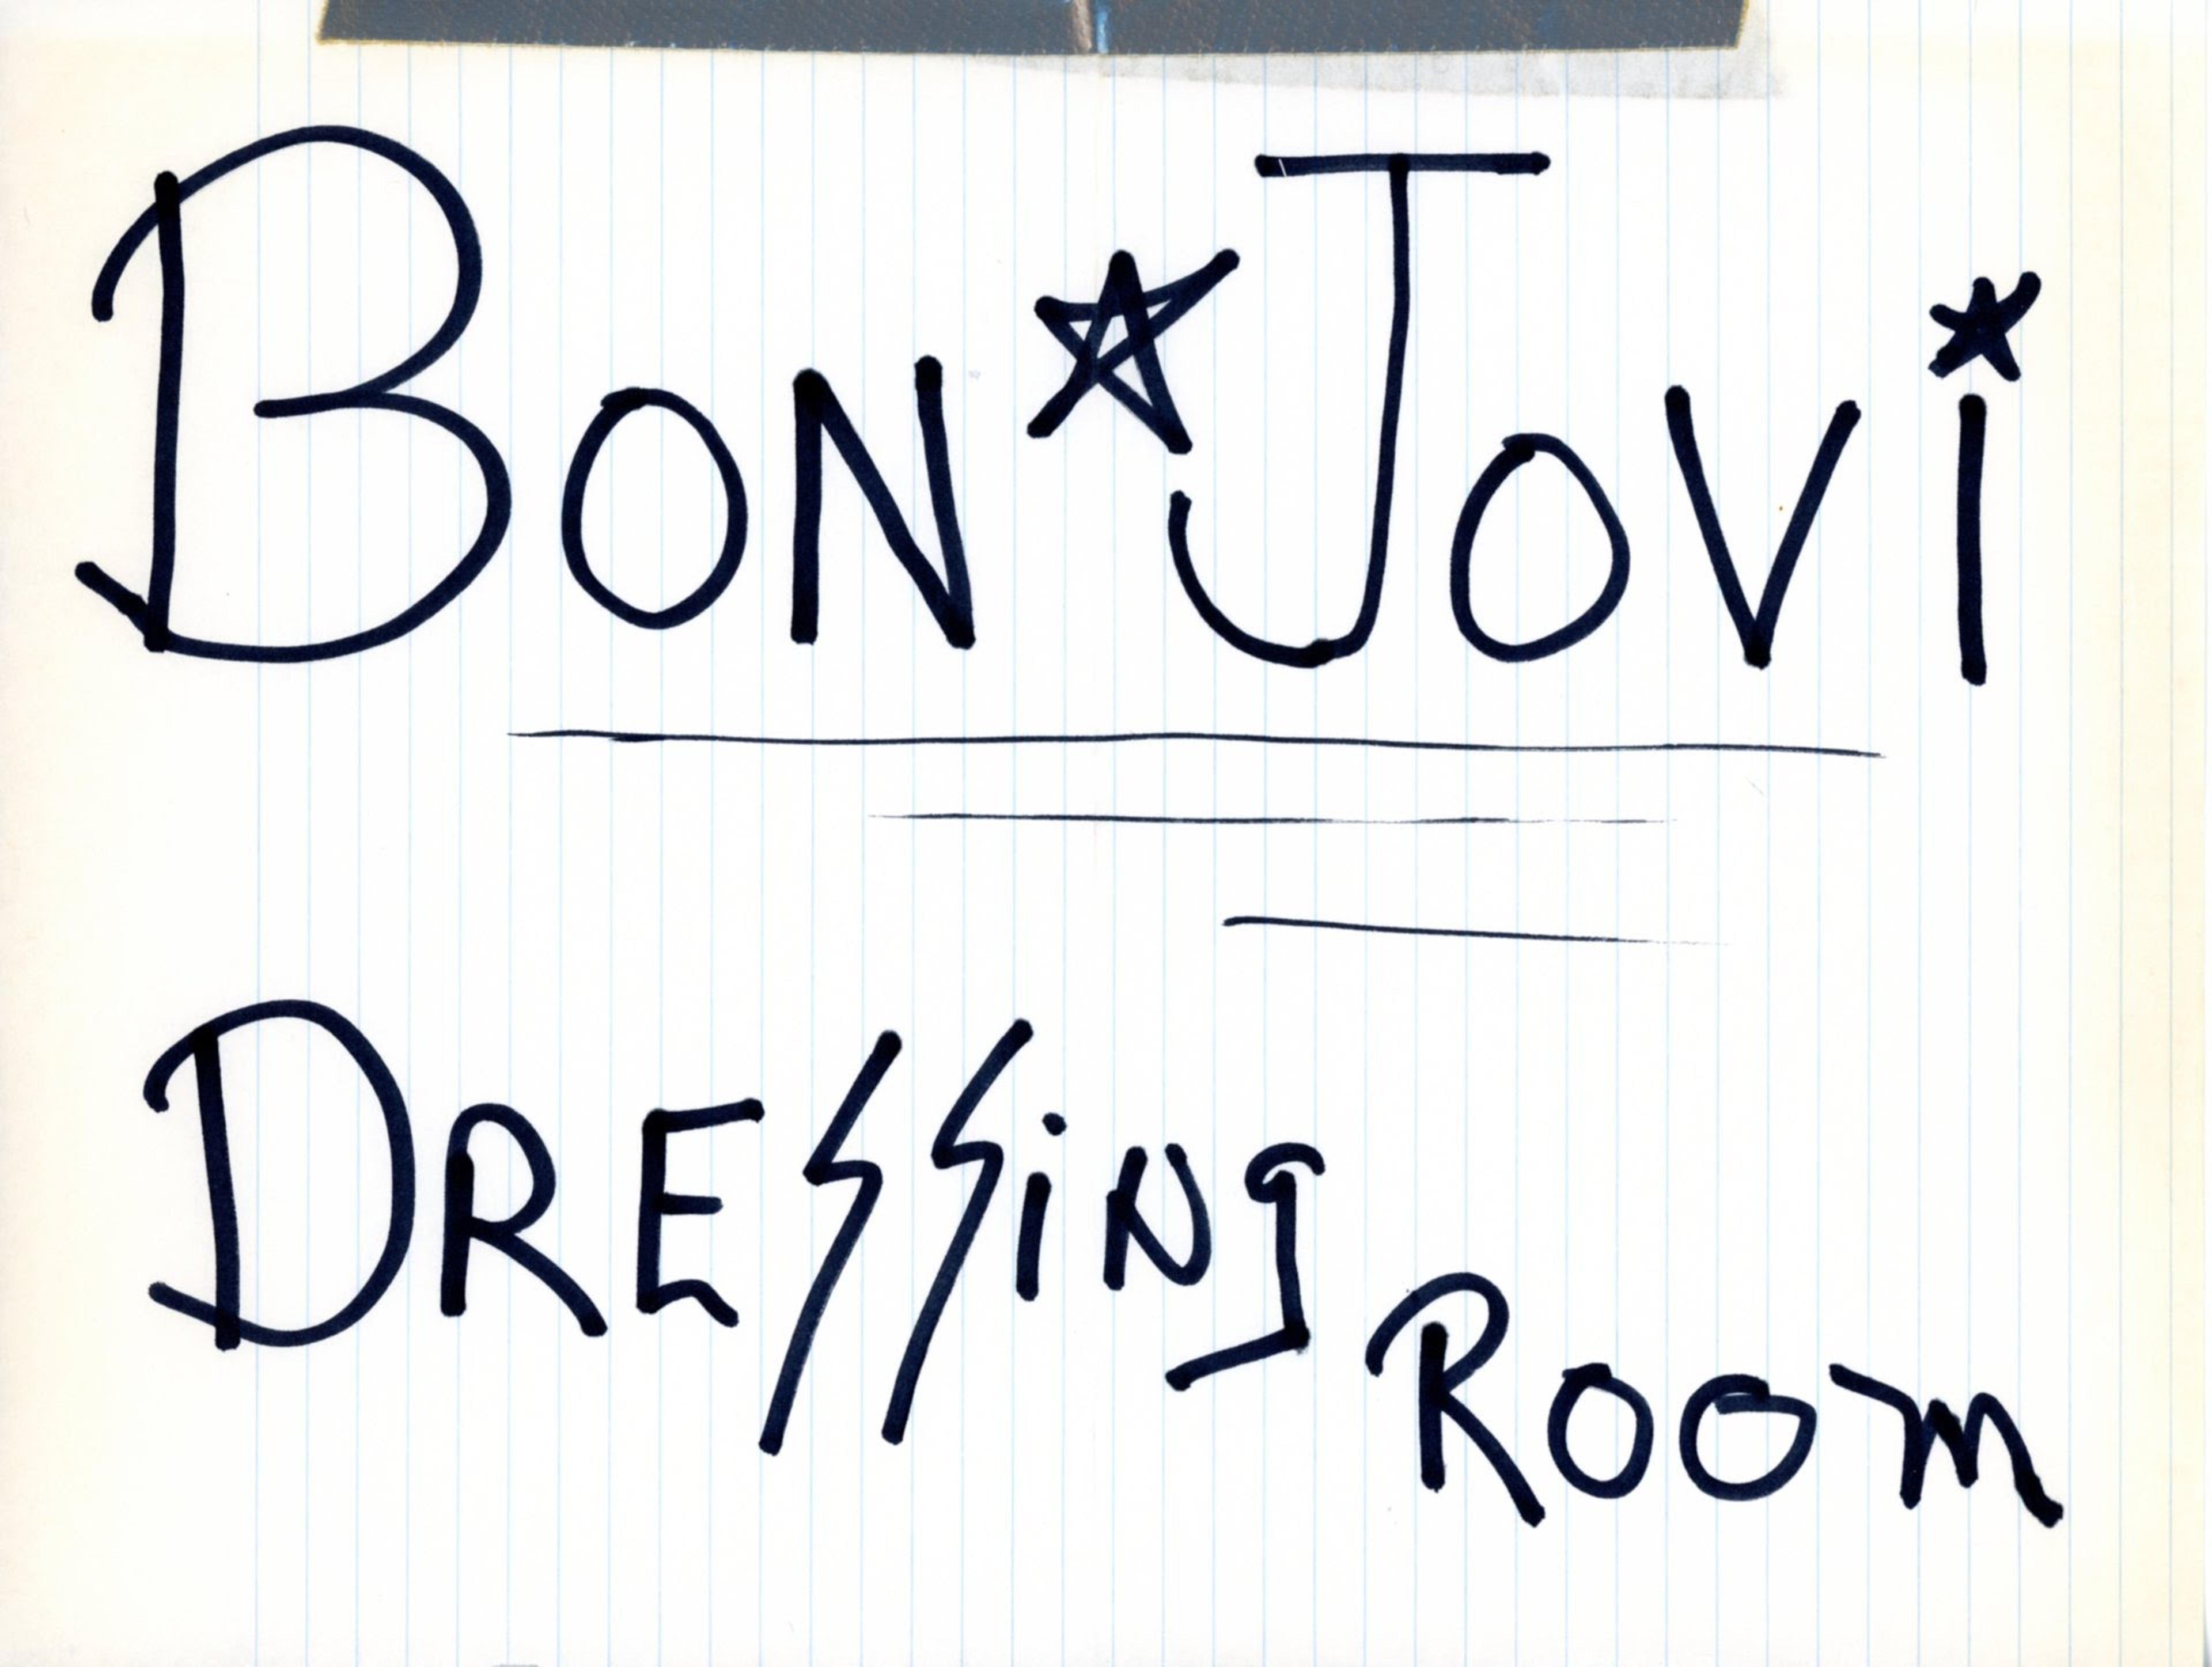 BON★JOVi
DRESSiNg
ROOm